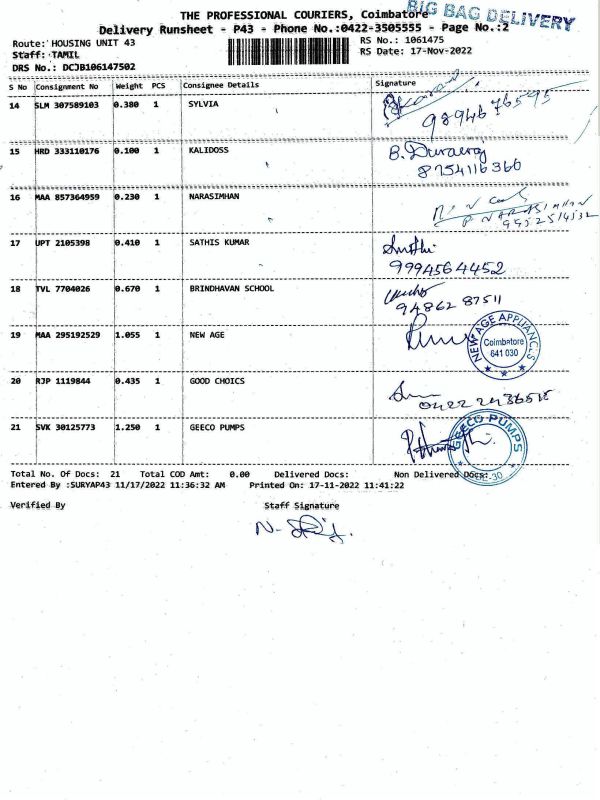 THE PROFESSIONAL COURIERS, Coimbatore
BIG BAG DELIVERY
Delivery Runsheet - P43 - Phone No.:0422-3505555 - Page No.:2
Route: HOUSING UNIT 43
RS No.: 1061475
Staff: TAMIL
RS Date: 17-Nov-2022
DRS No.: DCJB106147502
S No Consignment No Weight PCS Consignee Details Signature
14 SLM 307589103 0.380 1 SYLVIA
98946 76595
15 HRD 333110176 0.100 1 KALIDOSS B. Durairaj
8754116366
16 MAA 857364959 0.230 1 NARASIMHAN
17 UPT 2105398 0.410 1 SATHIS KUMAR
9994564452
18 TVL 7704026 0.670 1 BRINDHAVAN SCHOOL
94862 87511
19 MAA 295192529 1.055 1 NEW AGE
NEW AGE APPLIANCES
Coimbatore
641 030
20 RJP 1119844 0.435 1 GOOD CHOICS
21 SVK 30125773 1.250 1 GEECO PUMPS
GEECO PUMPS
Total No. Of Docs: 21 Total COD Amt: 0.00 Delivered Docs: Non Delivered Docs:
Entered By :SURYAP43 11/17/2022 11:36:32 AM Printed On: 17-11-2022 11:41:22
Verified By Staff Signature